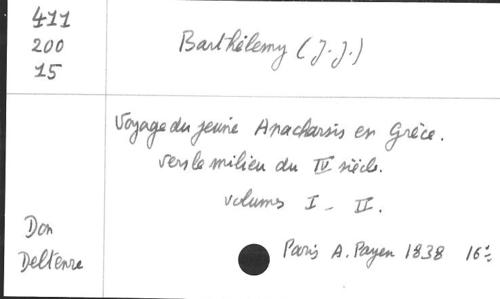 411
200
15
Barthélemy (J. J.)
Voyage du jeune Anacharsis en Grèce.
vers le milieu du IV siècle.
volumes I - II.
Don
Deltenre
Paris A. Payen 1838 16°